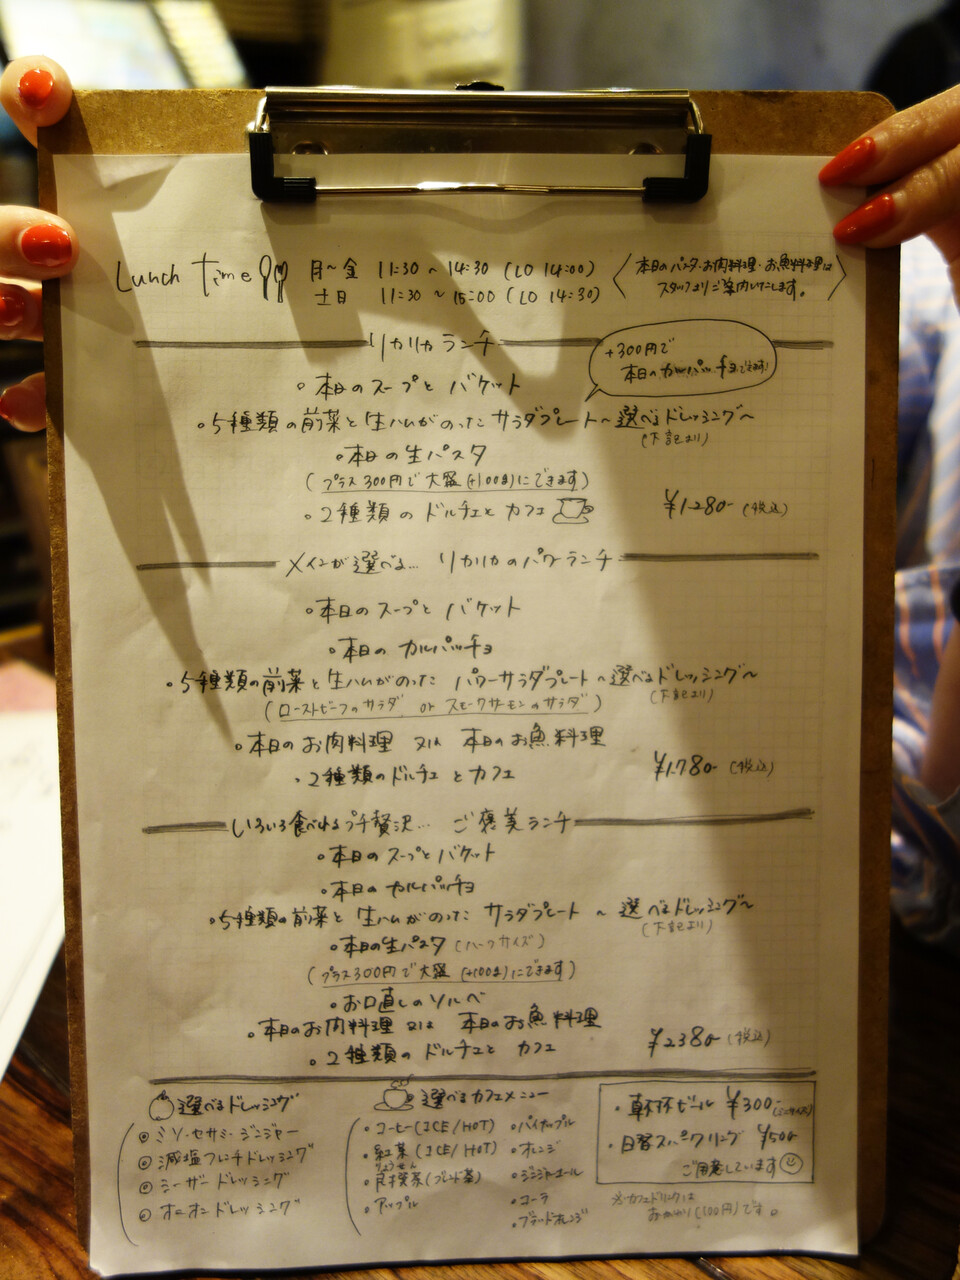 Lunch time 月~金 11:30~14:30 (LO 14:00)
土日 11:30~15:00 (LO 14:30)
本日のパスタ・お肉料理・お魚料理は
スタッフよりご案内いたします。
リカリカランチ
+300円で
本日のカルパッチョできます!
・本日のスープとバケット
・5種類の前菜と生ハムがのったサラダプレート~選べるドレッシング~
(下記より)
・本日の生パスタ
(プラス300円で大盛(+100g)にできます)
・2種類のドルチェとカフェ
¥1280- (税込)
メインが選べる… リカリカのパワーランチ
・本日のスープとバケット
・本日のカルパッチョ
・5種類の前菜と生ハムがのった パワーサラダプレート~選べるドレッシング~
(下記より)
(ローストビーフのサラダ or スモークサーモンのサラダ)
・本日のお肉料理 又は 本日のお魚料理
・2種類のドルチェとカフェ
¥1780- (税込)
いろいろ食べれるプチ贅沢… ご褒美ランチ
・本日のスープとバケット
・本日のカルパッチョ
・5種類の前菜と生ハムがのった サラダプレート ~選べるドレッシング~
(下記より)
・本日の生パスタ (ハーフサイズ)
(プラス300円で大盛(+100g)にできます)
・お口直しのソルベ
・本日のお肉料理 又は 本日のお魚料理
・2種類のドルチェとカフェ
¥2380- (税込)
選べるドレッシング
◎ミソ・セサミ・ジンジャー
◎減塩フレンチドレッシング
◎シーザードレッシング
◎オニオンドレッシング
選べるカフェメニュー
・コーヒー(ICE/HOT)
・紅茶(ICE/HOT)
・爽健茶(ブレンド茶)
・アップル
・パイナップル
・オレンジ
・ジンジャーエール
・コーラ
・ブラッドオレンジ
・乾杯ビール ¥300-(ミニサイズ)
・日替スパークリング ¥500-
ご用意しています
※カフェドリンクは
おかわり(100円)です。